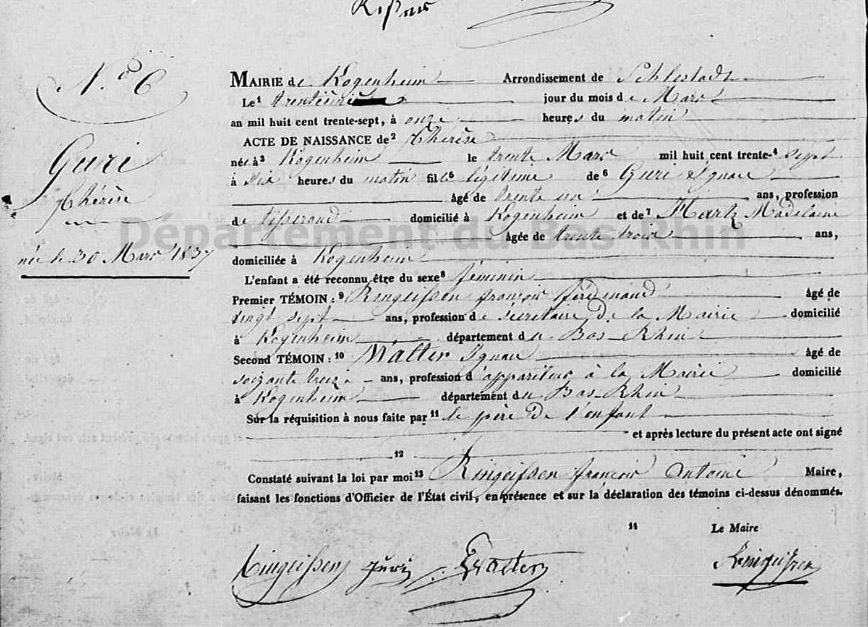 N.º 6
Guri
Thérèse
née le 30 Mars 1837
MAIRIE de Kogenheim Arrondissement de Schlestadt
Le¹ trente jour du mois de Mars
an mil huit cent trente-sept, à onze heures du matin
ACTE DE NAISSANCE de² Thérèse
née à³ Kogenheim le trente Mars mil huit cent trente-⁴ sept
à dix heures du matin fille⁵ légitime de⁶ Guri Ignace
âgé de trente six ans, profession
de tisserand domicilié à Kogenheim et de⁷ Hartz Madelaine
Département du Bas-Rhin
âgée de trente trois ans,
domiciliée à Kogenheim
L'enfant a été reconnu être du sexe⁸ féminin
Premier TÉMOIN :⁹ Ringeissen françois ferdinand âgé de
vingt sept ans, profession de secrétaire de la Mairie domicilié
à Kogenheim département du Bas-Rhin
Second TÉMOIN :¹⁰ Walter Ignace âgé de
soixante treize ans, profession d'appariteur à la Mairie domicilié
à Kogenheim département du Bas-Rhin
Sur la réquisition à nous faite par¹¹ le père de l'enfant
et après lecture du présent acte ont signé
12
Constaté suivant la loi par moi¹³ Ringeissen françois Antoine Maire,
faisant les fonctions d'Officier de l'État civil, en présence et sur la déclaration des témoins ci-dessus dénommés.
14 Le Maire
Ringeissen Guri Walter Ringeissen